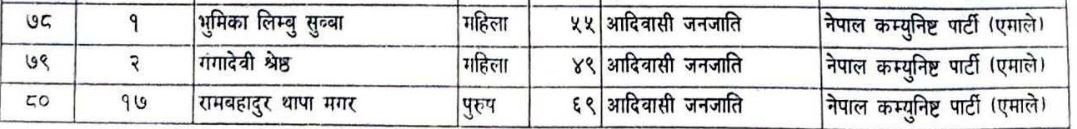 ७८ १ भुमिका लिम्बु सुब्बा महिला ५५ आदिवासी जनजाति नेपाल कम्युनिष्ट पार्टी (एमाले)
७९ २ गंगादेवी श्रेष्ठ महिला ४९ आदिवासी जनजाति नेपाल कम्युनिष्ट पार्टी (एमाले)
८० १७ रामबहादुर थापा मगर पुरुष ६९ आदिवासी जनजाति नेपाल कम्युनिष्ट पार्टी (एमाले)